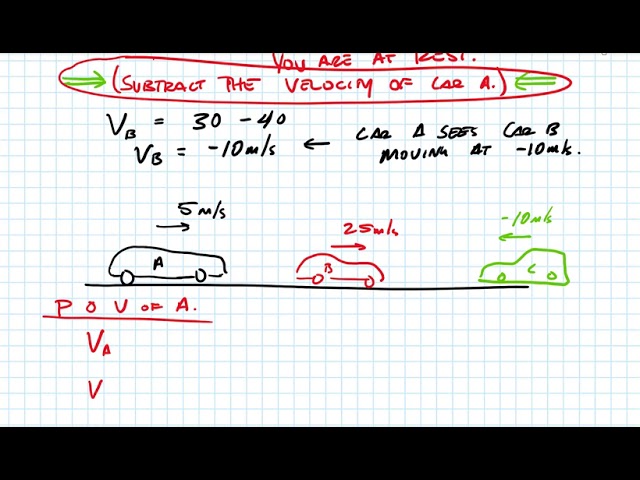 YOU ARE AT REST.
(SUBTRACT THE VELOCITY OF CAR A.)
VB = 30 - 40
VB = -10 m/s ← CAR A SEES CAR B
MOVING AT -10 m/s.
5 m/s
25 m/s
-10 m/s
A
B
C
P O V OF A.
VA
V